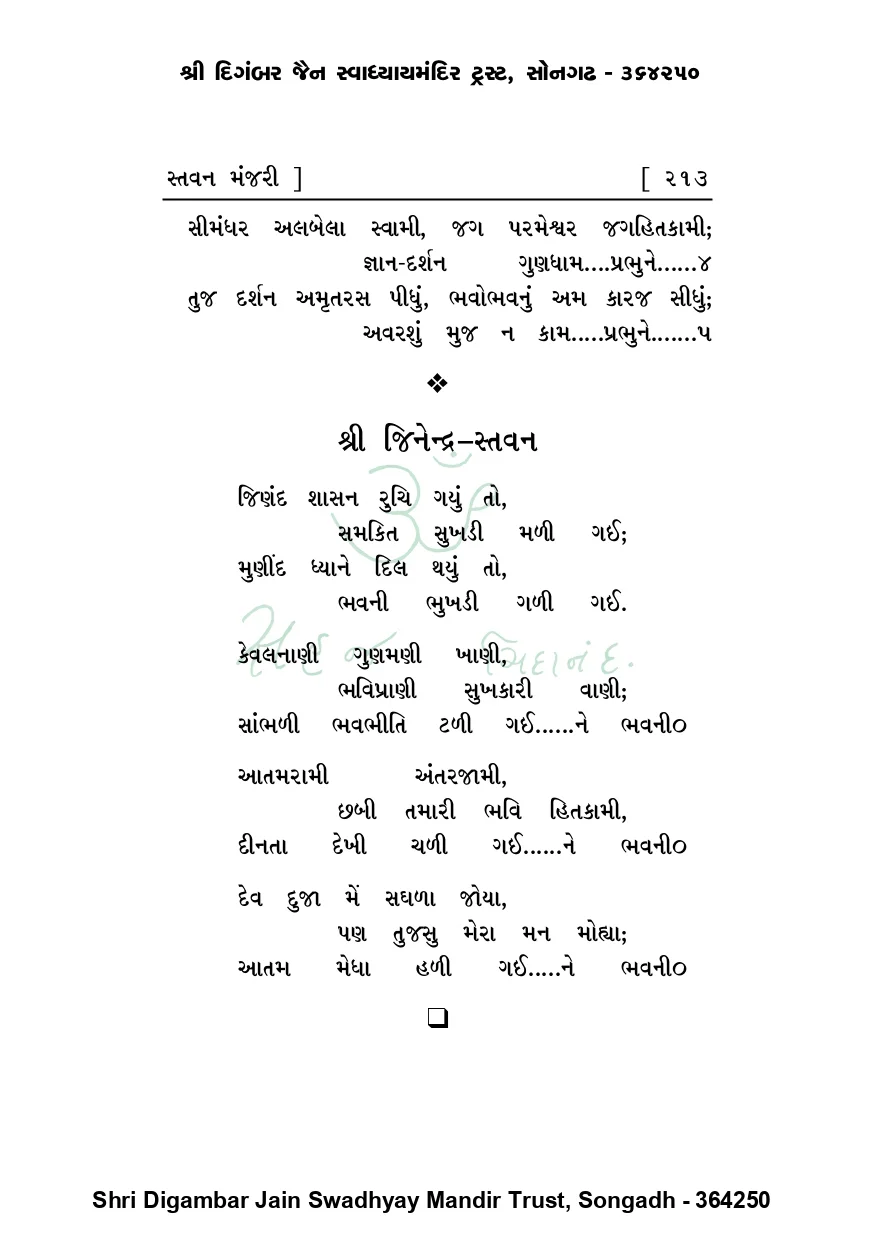 શ્રી દિગંબર જૈન સ્વાધ્યાયમંદિર ટ્રસ્ટ, સોનગઢ - ૩૬૪૨૫૦
સ્તવન મંજરી ] [ ૨૧૩
સીમંધર અલબેલા સ્વામી, જગ પરમેશ્વર જગહિતકામી;
જ્ઞાન-દર્શન ગુણધામ....પ્રભુને......૪
તુજ દર્શન અમૃતરસ પીધું, ભવોભવનું અમ કારજ સીધું;
અવરશું મુજ ન કામ.....પ્રભુને.......૫
❖
શ્રી જિનેન્દ્ર–સ્તવન
ૐ
જિણંદ શાસન રુચિ ગયું તો,
સમકિત સુખડી મળી ગઈ;
મુણીંદ ધ્યાને દિલ થયું તો,
ભવની ભુખડી ગળી ગઈ.
સહજ ચિદાનંદ.
કેવલનાણી ગુણમણી ખાણી,
ભવિપ્રાણી સુખકારી વાણી;
સાંભળી ભવભીતિ ટળી ગઈ......ને ભવની૦
આતમરામી અંતરજામી,
છબી તમારી ભવિ હિતકામી,
દીનતા દેખી ચળી ગઈ......ને ભવની૦
દેવ દુજા મેં સઘળા જોયા,
પણ તુજસુ મેરા મન મોહ્યા;
આતમ મેધા હળી ગઈ.....ને ભવની૦
❑
Shri Digambar Jain Swadhyay Mandir Trust, Songadh - 364250